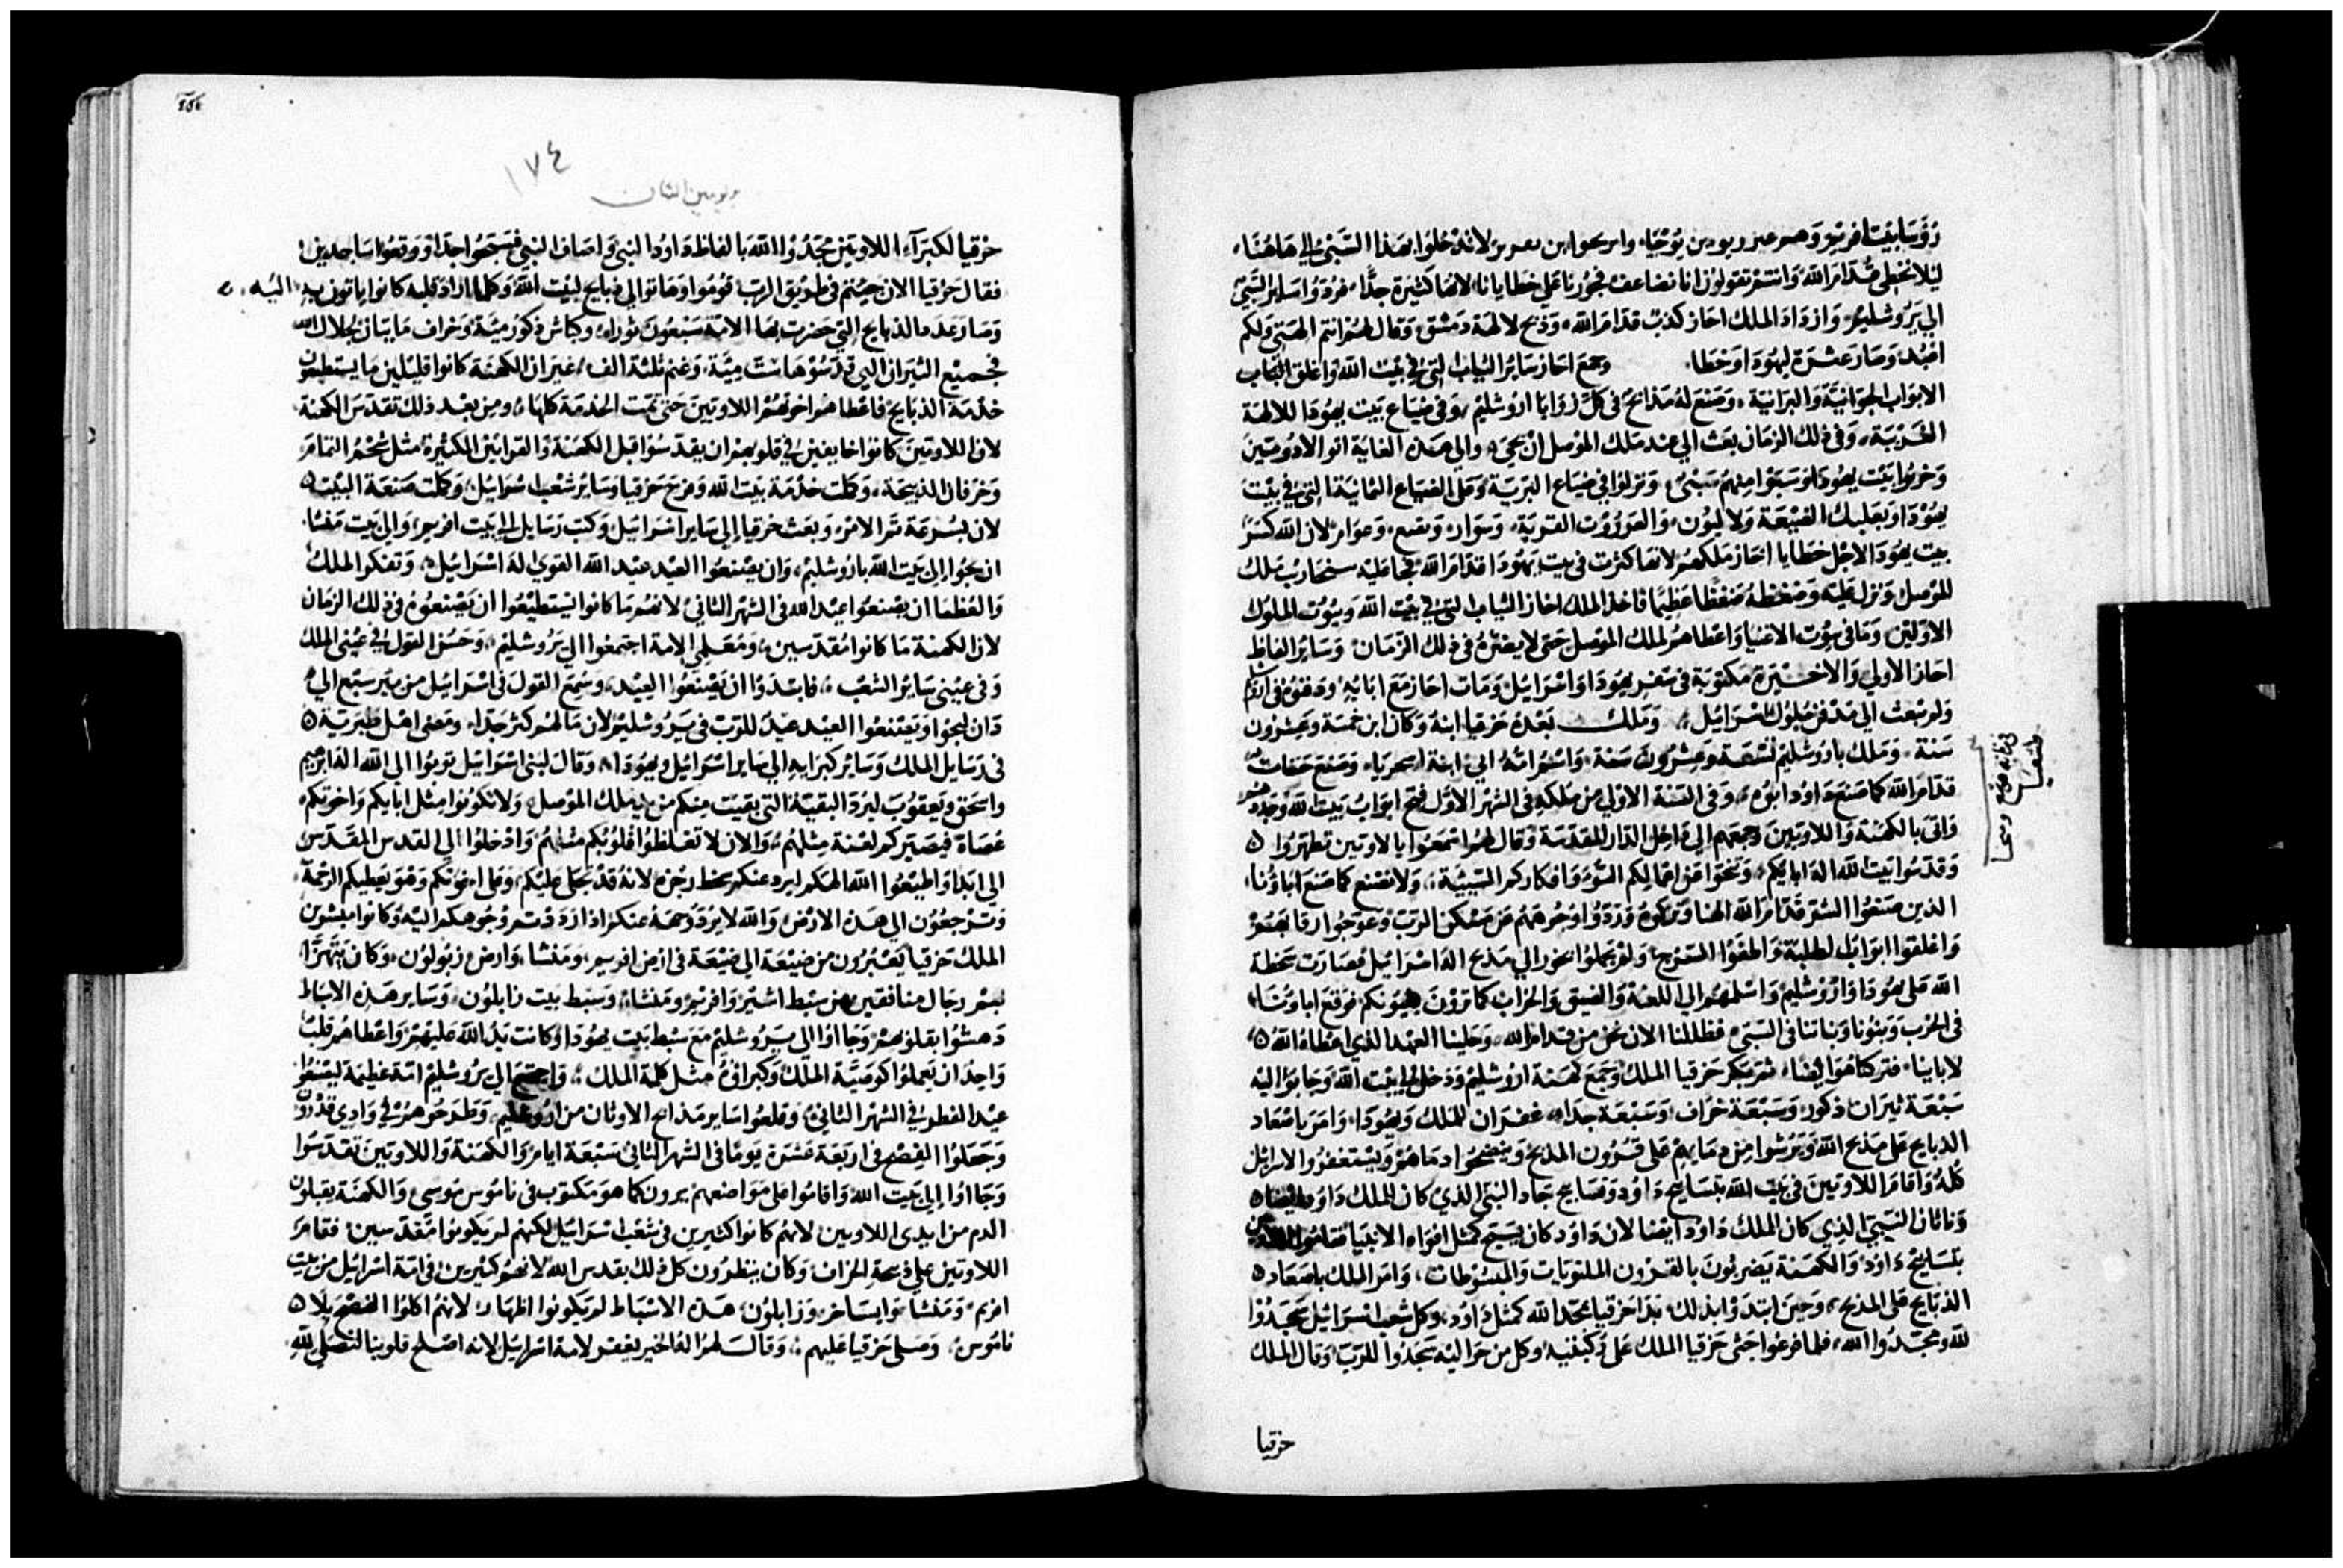 رُؤَسَا بَيْت افريم وهم عزر بن يوحنا
ليلا نخطى قُدّام الله وانتم تقولون انا نضاعف فجورنا على خطايانا لانها كثيرة جدًّا
الى يروشليم وازداد الملك احاز كذب قدام الله وذبح لالهة دمشق وقال لهم انتم الهتى ولكم
اعبد وصار عشرة ليهودا وخطا وجمع احاز ساير الثياب التى فى بيت الله واغلق
الابواب الجوانية والبرانية وصنع له مذابح فى كل زوايا اروشليم وفى ضياع بيت يهودا للالهة
الغريبة وفى ذلك الزمان بعث الى عند ملك الموصل ان يجى والى هذه الغاية اتوا الادوميين
وخربوا بيت يهودا وسبوا منهم سبى ونزلوا فى ضياع البرية وعلى الضياع التى فى بيت
لان الله كسر
بيت يهودا لاجل خطايا احاز ملكهم لانها كثرت فى بيت يهودا قدام الله فجا عليه سنحاريب ملك
الموصل ونزل عليه وضغطه ضغطا عظيما فاخذ الملك احاز الثياب التى فى بيت الله وبيوت الملوك
الاولين وما فى بيوت الاغنيا واعطاهم لملك الموصل حتى لا يضره فى ذلك الزمان وساير الفاظ
احاز الاولى والاخيرة مكتوبة فى سفر يهودا واسرايل ومات احاز مع ابايه ودفنوه فى
ولم يبعث الى مدفن ملوك اسرايل وملك بعده حزقيا ابنه وكان ابن خمسة وعشرون
سنة وملك باروشليم تسعة وعشرون سنة واسم امه ابى ابنة وصنع حسنات
قدام الله كما صنع داود ابوه وفى السنة الاولى من ملكه فى الشهر الاول فتح ابواب بيت الله وجددهم
واتى بالكهنة واللاويين وجمعهم الى داخل الدار المقدسة وقال لهم اسمعوا يا لاويين تطهروا
وقدسوا بيت الله اله ابايكم ونحوا عن اعمالكم السو وافكاركم السيئة ولا نصنع كما صنع اباونا
الذين صنعوا السو قدام الله الهنا وتركوه وردوا وجوههم عن مسكن الرب وعوجوا رقابهم
واغلقوا ابواب واطفوا السرج ولم يجعلوا بخور الى مذبح اله اسرايل فصارت سخطة
الله على يهودا واروشليم واسلمهم الى اللعنة والضيق والخراب كما ترون بعيونكم فوقع اباونا
فى الحرب وبنونا وبناتنا فى السبى
لاباينا فتركنا هو ايضا ثم بكر حزقيا الملك وجمع كهنة اروشليم ودخل الى بيت الله وجابوا اليه
سبعة ثيران ذكور وسبعة خراف وسبعة جدا غفران للملك وليهودا وامر باصعاد
الذبايح على مذبح الله ويرشوا من دمايهم على قرون المذبح وينضحوا دماهم ويستغفروا لاسرايل
كله واقام اللاويين فى بيت الله بتسابيح داود وتسابيح جاد النبى الذى كان للملك داود
وناثان النبى الذى كان للملك داود ايضا لان داود كان يسبح كمثل افواه الانبيا فقاموا
بتسابيح داود والكهنة يضربون بالقرون الملتويات والمبسوطات وامر الملك باصعاد
الذبايح على المذبح وحين ابتدوا بذلك بدا حزقيا يمجد الله كمثل داود وكل شعب اسرايل سجدوا
لله ومجدوا الله فلما فرغوا جثى حزقيا الملك على ركبتيه وكل من حواليه سجدوا للرب وقال الملك
حزقيا
١٧٤
حزقيا لكبراء اللاويين مجدوا الله بالفاظ داود النبى واصاف النبى فسبحوا جدا ووقعوا ساجدين
فقال حزقيا الان جيتم فى طريق الرب قوموا وهاتوا الى ذبايح لبيت الله وكلما اراد قلبه كانوا ياتون به اليه
وصار عدد الذبايح التى حضرت بها الامة سبعون ثورا وكباش ذكور مية وخراف مايتان لجلال الله
فجميع الثيران التى قدسوها ست مية وغنم ثلثة الف غير ان الكهنة كانوا قليلين ما يستطيعون
خدمة الذبايح فاعطاهم اخوتهم اللاويين حتى تمت الخدمة كلها ومن بعد ذلك تقدس الكهنة
لان اللاويين كانوا خايفين فى قلوبهم ان يقدسوا قبل الكهنة والقرابين الكثيرة مثل شحم التمام
وخرفان الذبيحة وكملت خدمة بيت الله وفرح حزقيا وساير شعب اسرايل وكملت صنعة البيت
لان بسرعة تم الامر وبعث حزقيا الى ساير اسرايل وكتب رسايل الى بيت افريم والى بيت منشا
ان يجوا الى بيت الله باروشليم وان يصنعوا العيد عيد الله القوى اله اسرايل وتفكر الملك
والعظما ان يصنعوا عيد الله فى الشهر الثانى لانهم ما كانوا يستطيعوا ان يصنعوه فى ذلك الزمان
لان الكهنة ما كانوا مقدسين ومعلمى الامة اجتمعوا الى يروشليم وحسن القول فى عينى الملك
وفى عينى ساير الشعب فابتدوا ان يصنعوا العيد وسمع القول فى اسرايل من بير سبع الى
دان ليجوا ويصنعوا العيد عيد للرب فى يروشليم لان مالهم كثر جدا ومضى اهل طبرية
فى رسايل الملك وساير كبرايه الى ساير اسرايل ويهودا وقال لبنى اسرايل توبوا الى الله اله ابرهيم
واسحق ويعقوب ليرد البقية التى بقيت منكم من يد ملك الموصل ولا تكونوا مثل ابايكم واخوتكم
عصاة فيصيركم لعنة مثلهم والان لا تغلظوا قلوبكم مثلهم وادخلوا الى القدس المقدس
الى ابدا واطيعوا الله الهكم ليرد عنكم سخط رجزه
وترجعون الى هذه الارض والله لا يرد وجهه عنكم اذا رددتم وجوهكم اليه وكانوا مبشرين
الملك حزقيا يعبرون من ضيعة الى ضيعة فى ارض افريم ومنشا وارض زبولون وكان يتهزا
بهم رجال منافقين من سبط اشير وافريم ومنشا وسبط بيت زابلون وساير هذه الاسباط
دهشوا بقلوبهم وجااوا الى يروشليم مع سبط بيت يهودا وكانت يد الله عليهم واعطاهم قلب
واحد ان يعملوا كوصية الملك وكبراوه مثل كلمة الملك واجتمع الى يروشليم امة عظيمة ليصنعوا
عيد الفطير فى الشهر الثانى وقلعوا ساير مذابح الاوثان من اروشليم وطرحوهم فى وادى قدرون
وجعلوا الفصح فى اربعة عشرة يوما فى الشهر الثانى سبعة ايام والكهنة واللاويين تقدسوا
وجااوا الى بيت الله واقاموا على مواضعهم يرون كما هو مكتوب فى ناموس موسى والكهنة يقبلون
الدم من ايدى اللاويين لانهم كانوا كثيرين فى شعب اسرايل لكنهم لم يكونوا مقدسين فقام
اللاويين على ذبيحة الخراف وكان ينظرون كل ذلك بقدس الله لانهم كثيرين فى امة اسرايل من بيت
افرم ومنشا وايساخر وزابلون هذه الاسباط لم يكونوا اطهار لانهم اكلوا الفصح بلا
ناموس وصلى حزقيا عليهم وقال لهم اله الخير يغفر لامة اسرايل لانه اصلح قلوبنا لنصلى لله